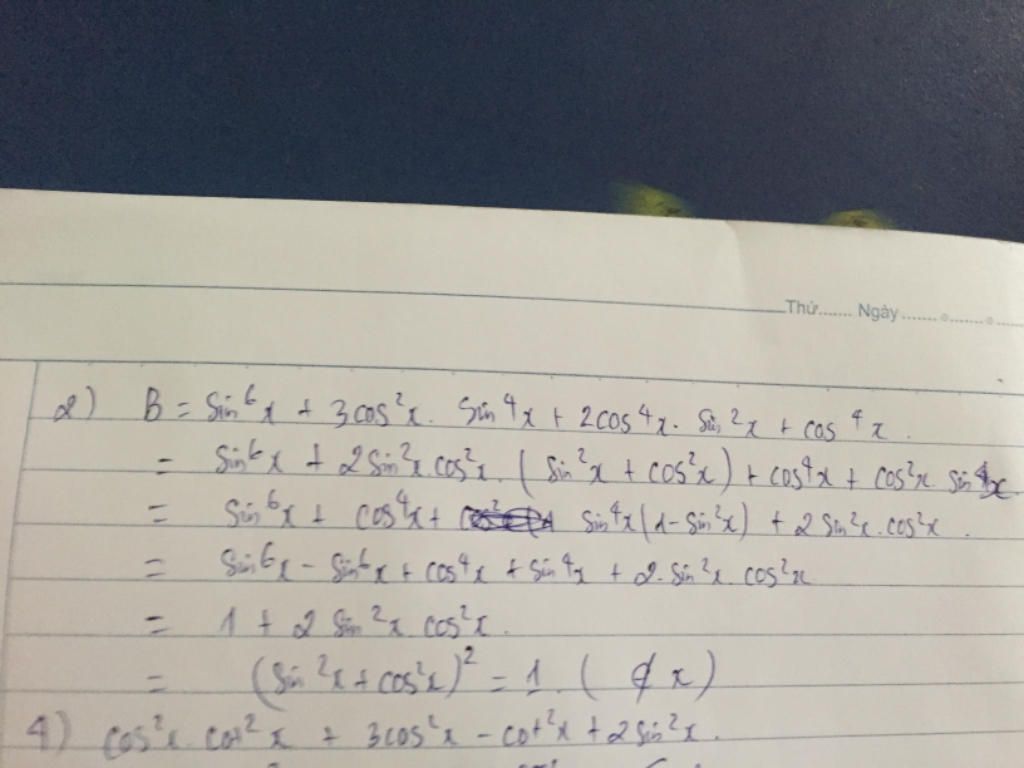 Thứ....... Ngày.......
2) B = sin⁶x + 3cos²x. sin⁴x + 2cos⁴x. sin²x + cos⁴x.
= sin⁶x + 2sin²x.cos²x. (sin²x + cos²x) + cos⁴x + cos²x. sin⁴x
= sin⁶x + cos⁴x + sin⁴x(1-sin²x) + 2sin²x.cos²x.
= sin⁶x - sin⁶x + cos⁴x + sin⁴x + 2.sin²x.cos²x
= 1 + 2sin²x cos²x.
= (sin²x + cos²x)² = 1. (∉ x)
4) cos²x. cot²x + 3cos²x - cot²x + 2sin²x.